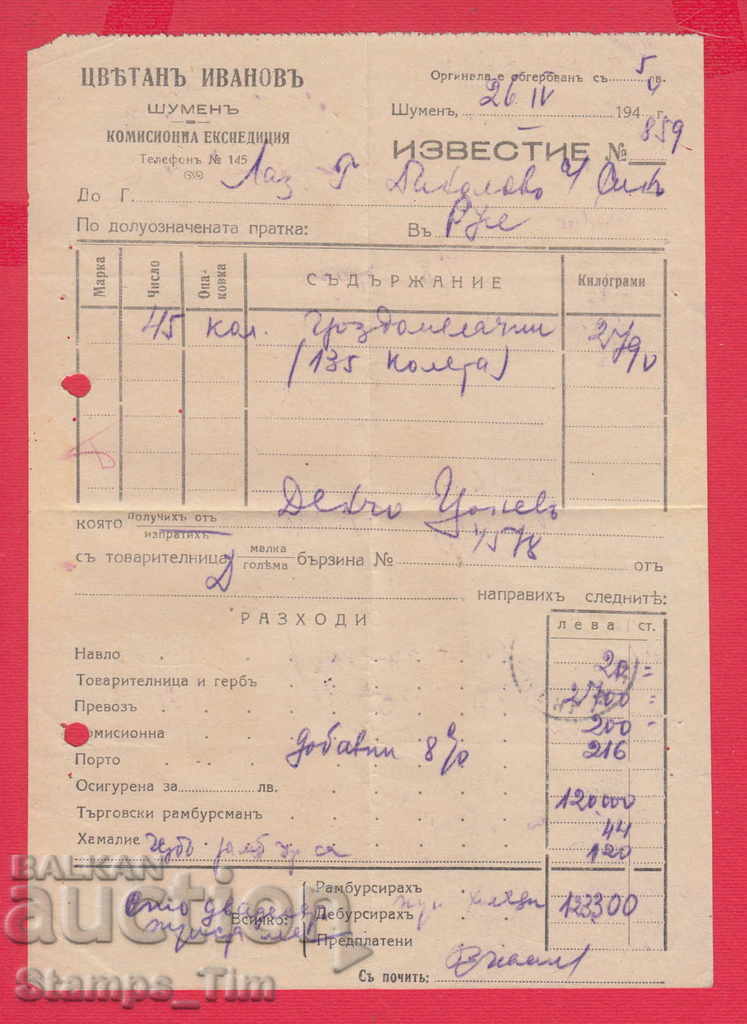 ЦВѢТАНЪ ИВАНОВЪ
ШУМЕНЪ
КОМИСИОННА ЕКСПЕДИЦИЯ
Телефонъ № 145
Оргинала е обгербванъ съ 5 лв.
Шуменъ, 26 IV 194 г.
ИЗВЕСТИЕ № 859
До Г. Лаз Г
По долуозначената пратка: Въ Русе
Марка Число Опаковка СЪДЪРЖАНИЕ Килограми
45 кол. Гроздомелачки 2790
(135 колета)
която получихъ отъ Дечко Цоневъ
изпратихъ
съ товарителница малка бързина № 1578 отъ
голѣма
направихъ следнитѣ:
РАЗХОДИ
ЛЕВА СТ.
Навло
Товарителница и гербъ 2700 =
Превозъ 200 =
Комисионна 216
Порто добавки 8%
Осигурена за лв. 120000
Търговски рамбурсманъ 44
Хамалие 120
Рамбурсирахъ 123300
Всичко: Дебурсирахъ
Предплатени
Съ почить:
BALKAN
auction
Stamps_Tim